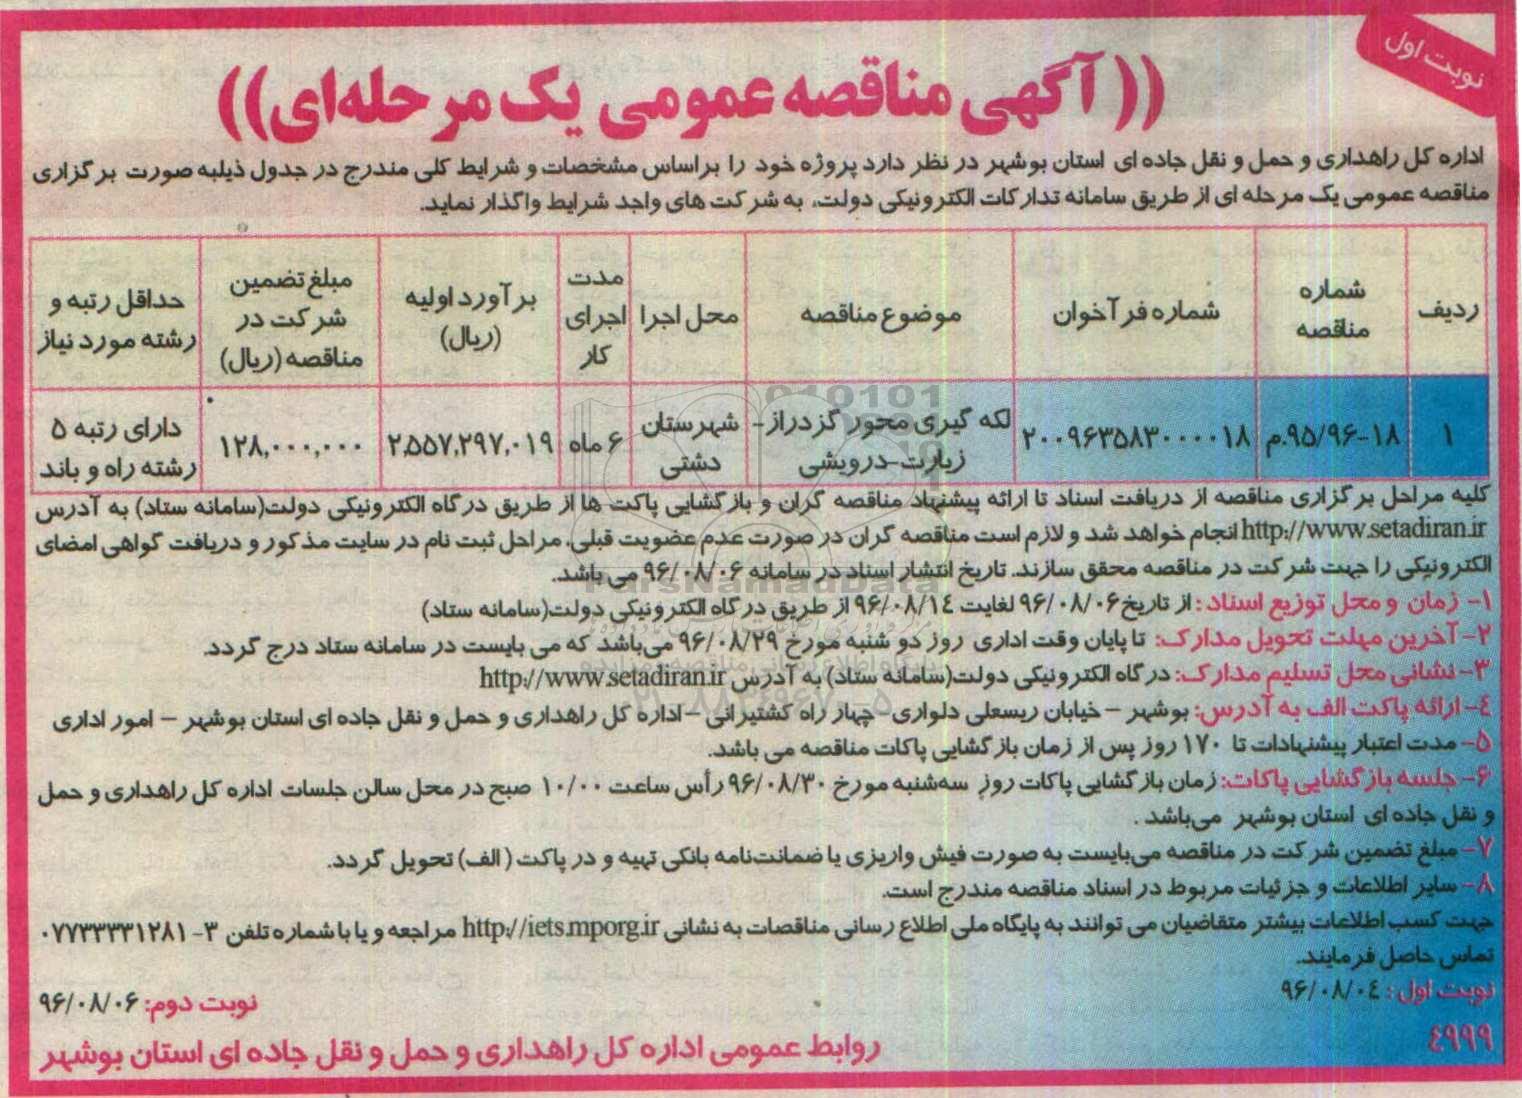 نوبت اول
((آگهی مناقصه عمومی یک مرحله‌ای))
اداره کل راهداری و حمل و نقل جاده ای استان بوشهر در نظر دارد پروژه خود را براساس مشخصات و شرایط کلی مندرج در جدول ذیلبه صورت برگزاری
مناقصه عمومی یک مرحله ای از طریق سامانه تدارکات الکترونیکی دولت، به شرکت های واجد شرایط واگذار نماید.
ردیف | شماره مناقصه | شماره فرآخوان | موضوع مناقصه | محل اجرا | مدت اجرای کار | برآورد اولیه (ریال) | مبلغ تضمین شرکت در مناقصه (ریال) | حداقل رتبه و رشته مورد نیاز
۱ | ۱۸-۹۵/۹۶.م | ۲۰۰۹۶۳۵۸۳۰۰۰۰۱۸ | لکه گیری محور گزدراز-زیارت-درویشی | شهرستان دشتی | ۶ ماه | ۲,۵۵۷,۲۹۷,۰۱۹ | ۱۲۸,۰۰۰,۰۰۰ | دارای رتبه ۵ رشته راه و باند
کلیه مراحل برگزاری مناقصه از دریافت اسناد تا ارائه پیشنهاد مناقصه گران و بازگشایی پاکت ها از طریق درگاه الکترونیکی دولت(سامانه ستاد) به آدرس
http://www.setadiran.ir انجام خواهد شد و لازم است مناقصه گران در صورت عدم عضویت قبلی، مراحل ثبت نام در سایت مذکور و دریافت گواهی امضای
الکترونیکی را جهت شرکت در مناقصه محقق سازند. تاریخ انتشار اسناد در سامانه ۹۶/۰۸/۰۶ می باشد.
۱- زمان و محل توزیع اسناد: از تاریخ ۹۶/۰۸/۰۶ لغایت ۹۶/۰۸/۱۴ از طریق درگاه الکترونیکی دولت(سامانه ستاد)
۲- آخرین مهلت تحویل مدارک: تا پایان وقت اداری روز دو شنبه مورخ ۹۶/۰۸/۲۹ می‌باشد که می بایست در سامانه ستاد درج گردد.
۳- نشانی محل تسلیم مدارک: درگاه الکترونیکی دولت(سامانه ستاد) به آدرس http://www.setadiran.ir
۴- ارائه پاکت الف به آدرس: بوشهر – خیابان ریسعلی دلواری-چهار راه کشتیرانی –اداره کل راهداری و حمل و نقل جاده ای استان بوشهر – امور اداری
۵- مدت اعتبار پیشنهادات تا ۱۷۰ روز پس از زمان بازگشایی پاکات مناقصه می باشد.
۶- جلسه بازگشایی پاکات: زمان بازگشایی پاکات روز سه‌شنبه مورخ ۹۶/۰۸/۳۰ رأس ساعت ۱۰/۰۰ صبح در محل سالن جلسات اداره کل راهداری و حمل
و نقل جاده ای استان بوشهر می‌باشد .
۷- مبلغ تضمین شرکت در مناقصه می‌بایست به صورت فیش واریزی یا ضمانت‌نامه بانکی تهیه و در پاکت ( الف) تحویل گردد.
۸- سایر اطلاعات و جزئیات مربوط در اسناد مناقصه مندرج است.
جهت کسب اطلاعات بیشتر متقاضیان می توانند به پایگاه ملی اطلاع رسانی مناقصات به نشانی http://iets.mporg.ir مراجعه و یا با شماره تلفن ۳-۰۷۷۳۳۳۳۱۲۸۱
تماس حاصل فرمایند.
نوبت اول: ۹۶/۰۸/۰۴
نوبت دوم: ۹۶/۰۸/۰۶
۴۹۹۹
روابط عمومی اداره کل راهداری و حمل و نقل جاده ای استان بوشهر
ParsNamadData